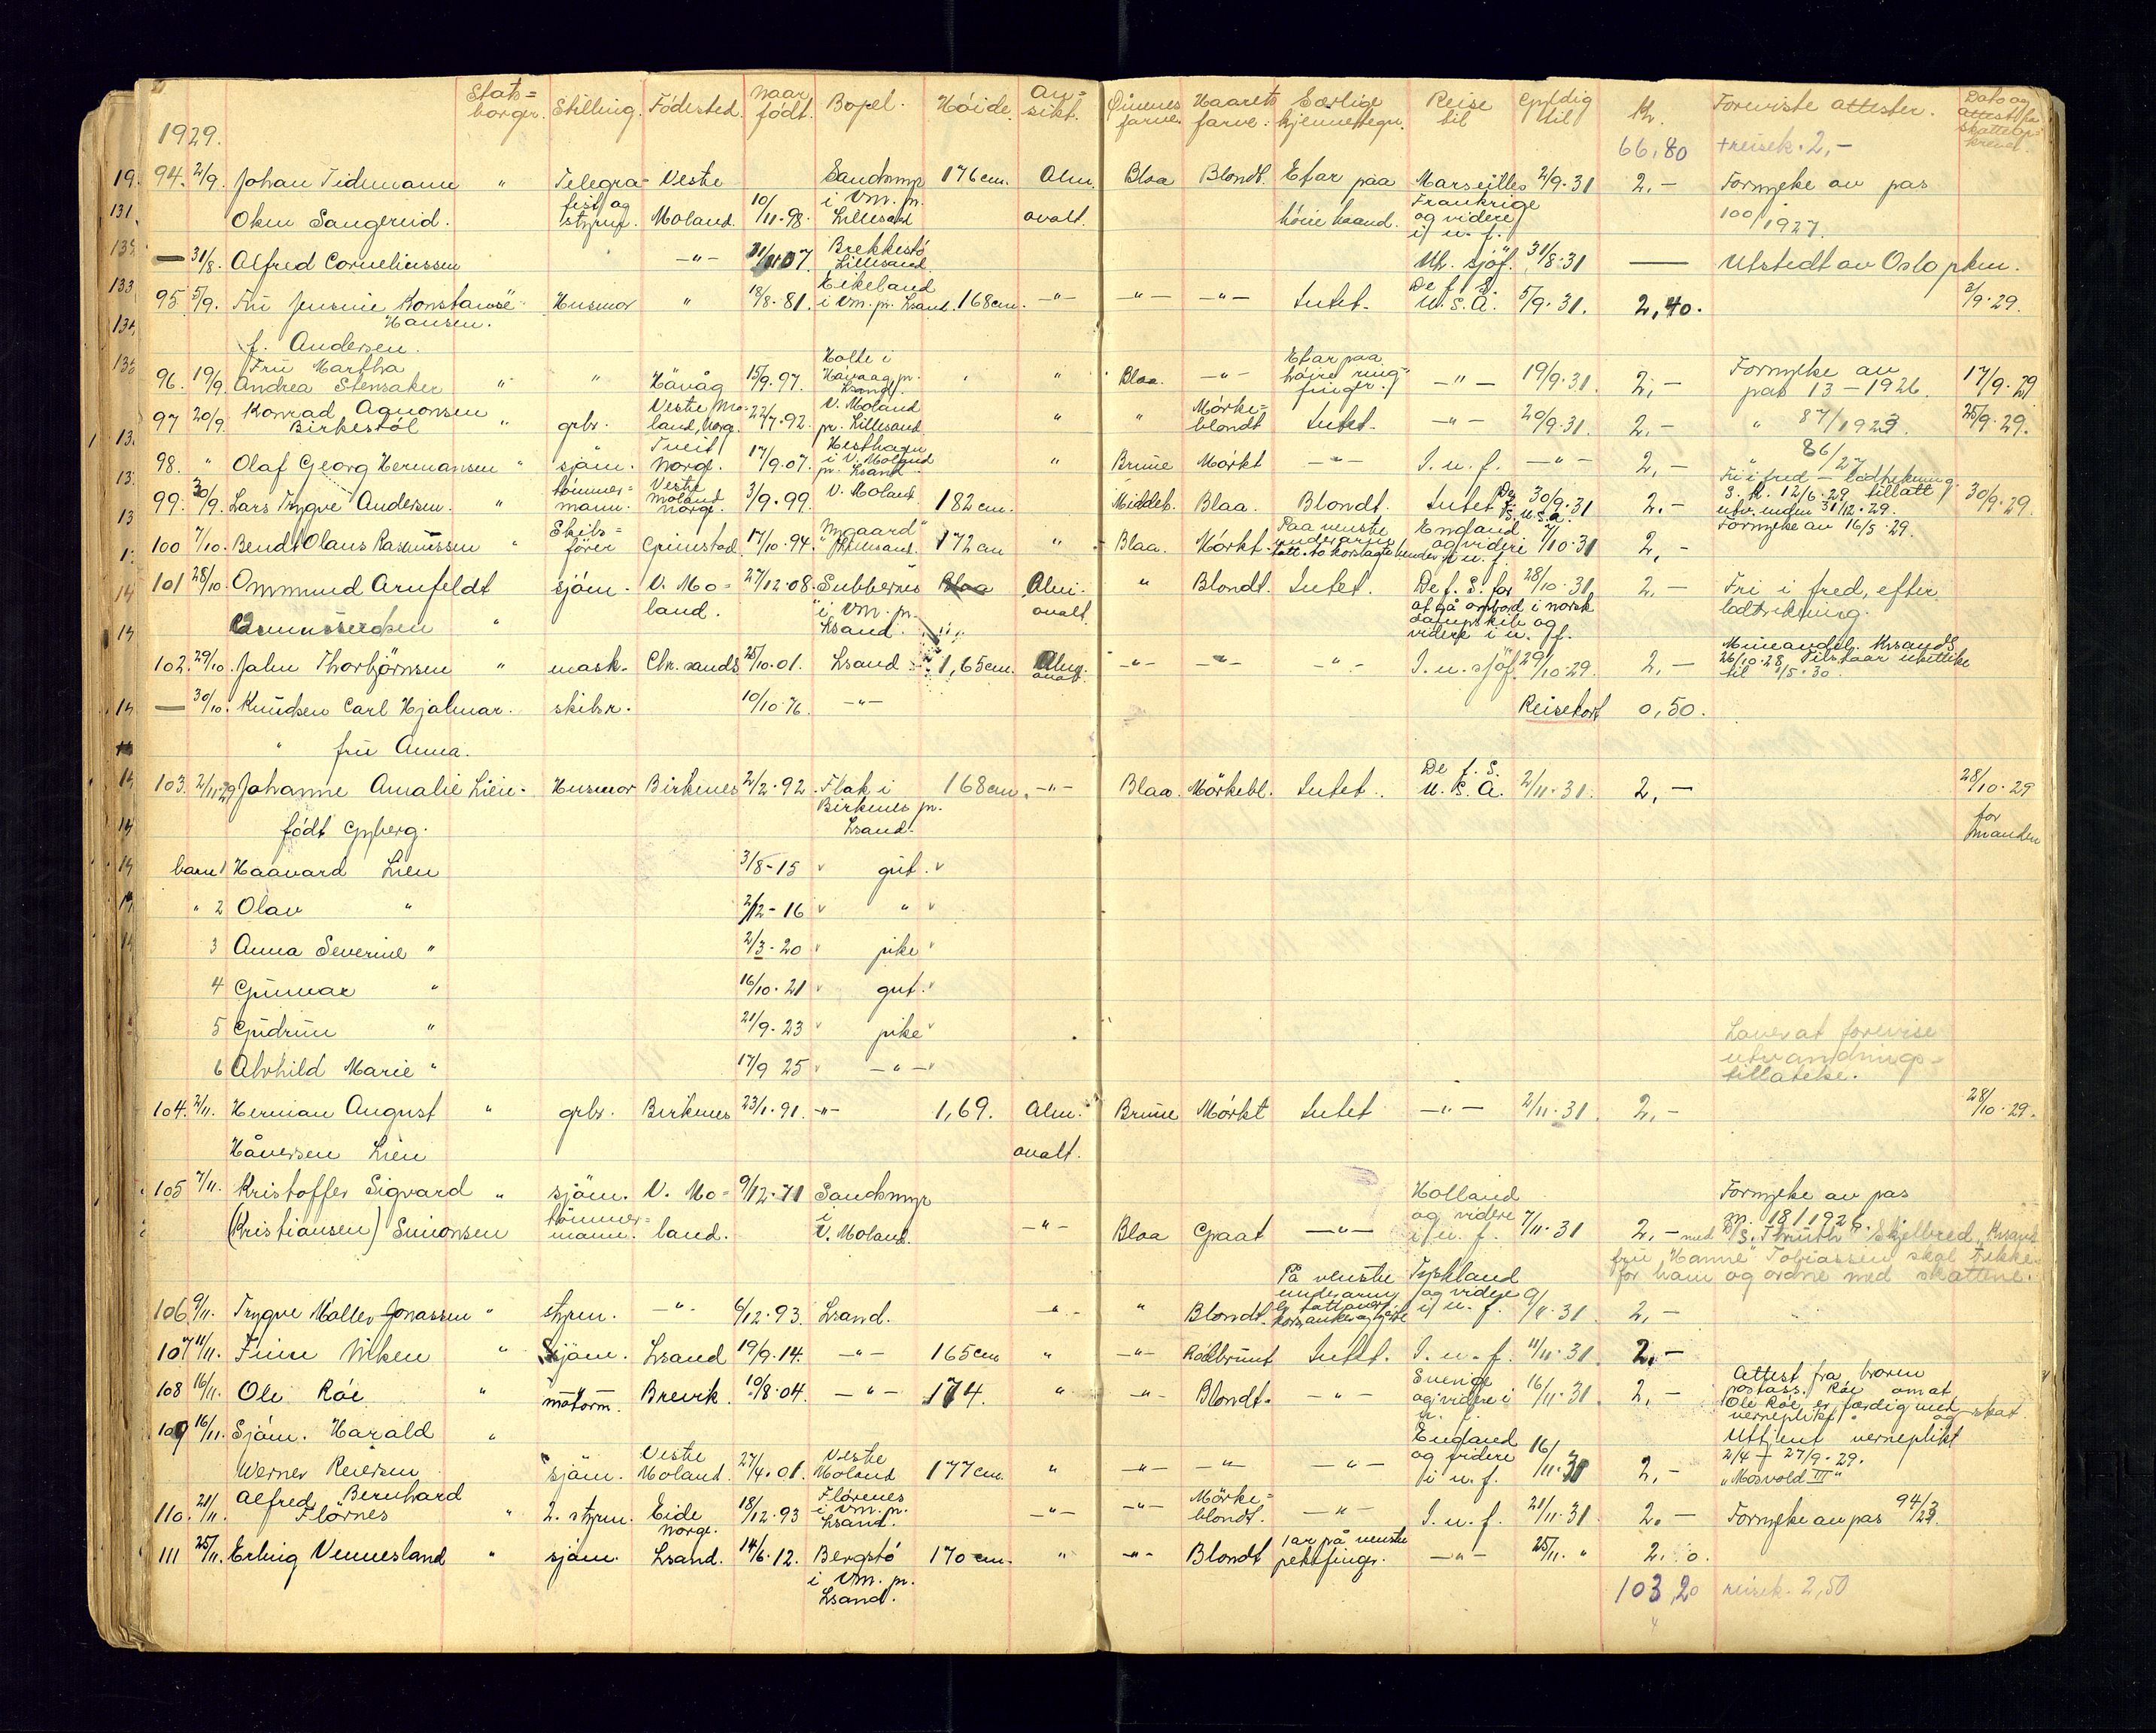 1929.
Stats=
borger. Stilling. Födested. Naar
født. Bopel. Höide. An=
sikt. Öinenes
farve. Haarets
farve. Særlige
kjennetegn. Reise
til Gyldig
til Kr. Foreviste attester. Dato og
attest fra
skatteop=
krever.
66,80 + reisek. 2,-
94. 2/9. Johan Tidemann " Telegra= Vestre Sandsmyr 176 cm. Alm. Blaa Blondt. Et ar paa Marseilles 2/9.31 2,- Fornyelse av pas
Oken Saugerud. fist og
styrm. Moland. 10/11.98. i V.m. pr.
Lillesand ovalt. höire haand. Frankrige
og videre
i u. f. 100/1927.
— 31/8. Alfred Corneliussen —"— 31/1107 Brekkestö
Lillesand. Ut. sjöf. 31/8.31 — Utstedt av Oslo pkm.
95 5/9. Fru Jensine Konstanse Husmor " 18/8.81. Eikeland
i V.m. pr. Lsand. 168 cm. —"— —"— —"— Intet. De f. S.
U.S.A. 5/9.31. 2,40. 3/9.29.
Hansen.
f. Andersen.
96. 19/9. Fru Martha
Andrea Stensaker " " Hövåg 15/9.97. Holte i
Hövaag pr.
Lsand. " Blaa. —"— Et ar paa
höire ring=
finger. —"— 19/9.31. 2,- Fornyelse av
pas 13 – 1926. 17/9.29
97 20/9. Konrad Aanonsen
Birkestöl " grbr. Vestre Mo=
land, Norg. 22/7.92. V. Moland
pr. Lillesand " " Mörke=
blondt Intet. —"— 20/9.31. 2,- " 87/1923. 25/9.29.
98. " Olaf Georg Hermansen " sjöm. Tveit
Norge. 17/9.07. Hesthagen
i V. Moland
pr. Lsand. " Brune Mörkt —"— I. u. f. —"— 2,- " 86/27
99. 30/9. Lars Trygve Andersen. " tömmer=
mann. Vestre
Moland
Norge. 3/9.99. V. Moland 182 cm. Middels. Blaa. Blondt. Intet De
f. U.S.A. 30/9.31 2,- Fri i fred – lodtrekning.
S. R. 12/6.29 tillatt
utv. inden 31/12.29. 30/9.29.
100 7/10. Bendt Olaus Rasmussen " Skibs=
förer Grimstad. 17/10.94. "Nygaard"
Lillesand. 172 cm " Blaa. Mörkt. Paa venstre
underarm
tatt. to korslagte hender England
og videre
i u. f. 7/10.31 2,- Fornyelse av 16/5.29.
101 28/10. Ommund Arnfeldt sjöm. V. Mo= 27/12.08. Subbernes Blaa Alm. " Blondt. Intet. De f. S. for 28/10.31. 2,- Fri i fred, efter
Gunnuseodsen " land. i V.m. pr.
Lsand. ovalt. at gå ombord i norsk
dampskib og
videre i u. f. lodtrekning.
102. 29/10. John Thorbjörnsen " mask. Chr.sands 25/10.01. Lsand 1,65 cm. Alm.
ovalt. —"— —"— —"— I. u. sjöf. 29/10.29. 2,- Mineavdelg. Krsands
26/10.28. Tilstaar utsettelse
til 1/5.30.
— 30/10. Knudsen Carl Hjalmar. skibsr. 10/10.76. —"— Reisekort 0,50.
" fru Anna.
103. 2/11.29 Johanne Amalie Lien. Husmor Birkenes 2/2.92. Flak i
Birkenes pr.
Lsand. 168 cm. —"— Blaa. Mörkebl. Intet. De f. S.
U. S. A. 2/11.31. 2,- 28/10.29
for
manden
født Gyberg.
barn 1 Haavard Lien 3/8-15 gut.
" 2 Olav " 2/12-16 "
3 Anna Severine " 2/3-20 pike
4 Gunnar " 16/10.21 gut.
5 Gudrun " 21/9.23 pike
6 Alvhild Marie " 17/9 25 —"—
Lover at forevise
utvandrings=
tillatelse.
104. 2/11. Herman August " grbr. Birkenes 23/1.91. —"— 1,69. Alm. Brune Mörkt Intet —"— 2/11.31. 2,- 28/10.29.
Håversen Lien ovalt.
105 7/11. Kristoffer Sigvard " sjöm. V. Mo= 9/12.71 Sandsmyr Holland Fornyelse av pas
(Kristiansen) Simonsen tömmer=
mann. land. i
V. Moland. —"— Blaa Graat —"— og videre
i u. f. 7/11.31 2,- nr. 18/1926.
med D/S. "Thruth" Skjelbred, Krsand
fru "Hanne" Tobiassen skal trekke
for ham og ordne med skattene.
106 9/11. Trygve Möller Jonassen " styrm. —"— 6/12.93. Lsand. —"— " Blondt. På venstre
underarm
er tatt.
kors, anker og hjerte Tyskland
og videre
i u. f. 9/11.31. 2,-
107 11/11. Finn Nilsen " Sjöm. Lsand 19/9.14. —"— 165 cm " —"— Rödbrunt Intet. I. u. f. 11/11.31. 2,-
108 16/11. Ole Röe " motorm. Brevik. 10/8.04. —"— 174. " —"— Blondt. —"— Sverige
og videre i
u. f. 16/11.31 2,- Attest fra broren
postass. Röe om at
Ole Röe er færdig med
verneplikt og skat.
109 16/11. Sjöm. Harald "
Werner Reiersen sjöm. Vestre
Moland. 27/4.01. Vestre
Moland 177 cm. " —"— —"— —"— England
og videre
i u. f. 16/11.31 2,- Uttjent verneplikt
2/4 – 27/9.29.
"Mosvold III"
110. 21/11. Alfred Bernhard
Flörnes " 2. styrm. Eide
Norge. 18/12.93 Flörenes
i V.m. pr.
Lsand. —"— —"— Mörke=
blondt. —"— I. u. f. 21/11.31 2,- Fornyelse av pas 94/29.
111 25/11. Erling Vennesland " sjöm. Lsand. 14/6.12. Bergstö
i V.m. pr.
Lsand. 170 cm. " —"— Blondt 1 ar på venstre
pekefinger. —"— 25/11. " 2.
103,20 reisek. 2,50